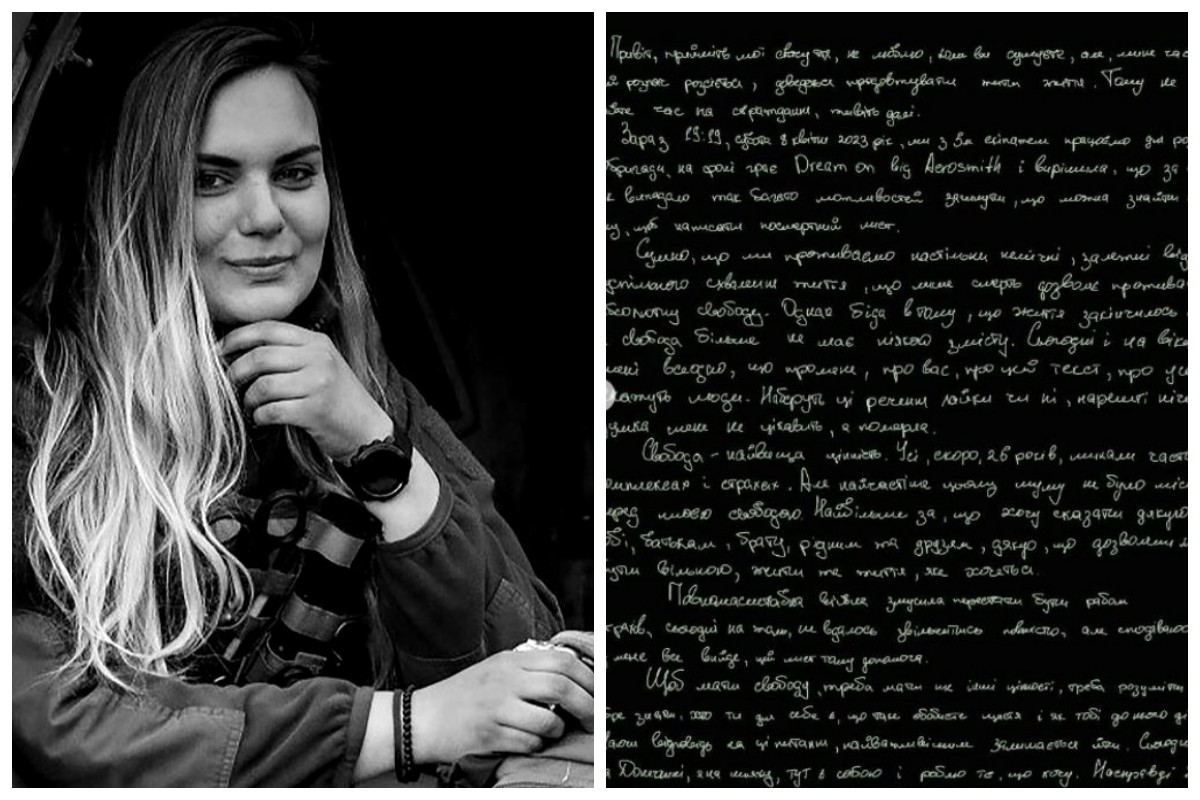 Привіт, прийміть мої співчуття, не люблю, коли ви сумуєте, але, мине час
розпач розсіється, доведеться продовжувати жити життя. Тому не
час на страждання, живіть далі.
Зараз 19:19, субота 8 квітня 2023 рік, ми з 3м екіпажем працюємо для
бригади, на фоні грає Dream on від Aerosmith і вирішила, що за
випадало так багато можливостей загинути, що можна знайти
щоб написати посмертний лист.
Сумно, що ми проживаємо настільки нелічні, залежні від
суспільного схвалення життя, що лише смерть дозволяє проживати
абсолютну свободу. Однак біда в тому, що життя закінчилось
свобода більше не має ніякого змісту. Сьогодні і на віки
мені всеодно, що про мене, про вас, про цей текст, про
кажуть люди. Наберуть ці речення лайки чи ні, нарешті
думка мене не цікавить, я померла.
Свобода - найвища цінність. Усі, скоро, 26 років, минали
комплексах і страхах. Але найчастіше цьому шуму не було
перед моєю свободою. Найбільше за, що хочу сказати дякую
собі, батькам, брату, рідним та друзям, дякую, що дозволили
бути вільною, жити те життя, яке хочеться.
Повномасштабна війна змусила перестати бути рабом
страхів, сьогодні на жаль, не вдалось звільнитись повністю, але
мене все вийде, цей лист тому допомога.
Щоб мати свободу, треба мати ще інші цінності, треба розуміти
добре знати, хто ти для себе є, що таке особисте щастя і як тобі до нього
відповідь на ці питання, найважливішим залишається йти. Сьогодні
Донеччині, яка шляху, тут є собою і роблю те, що хочу. Насправді